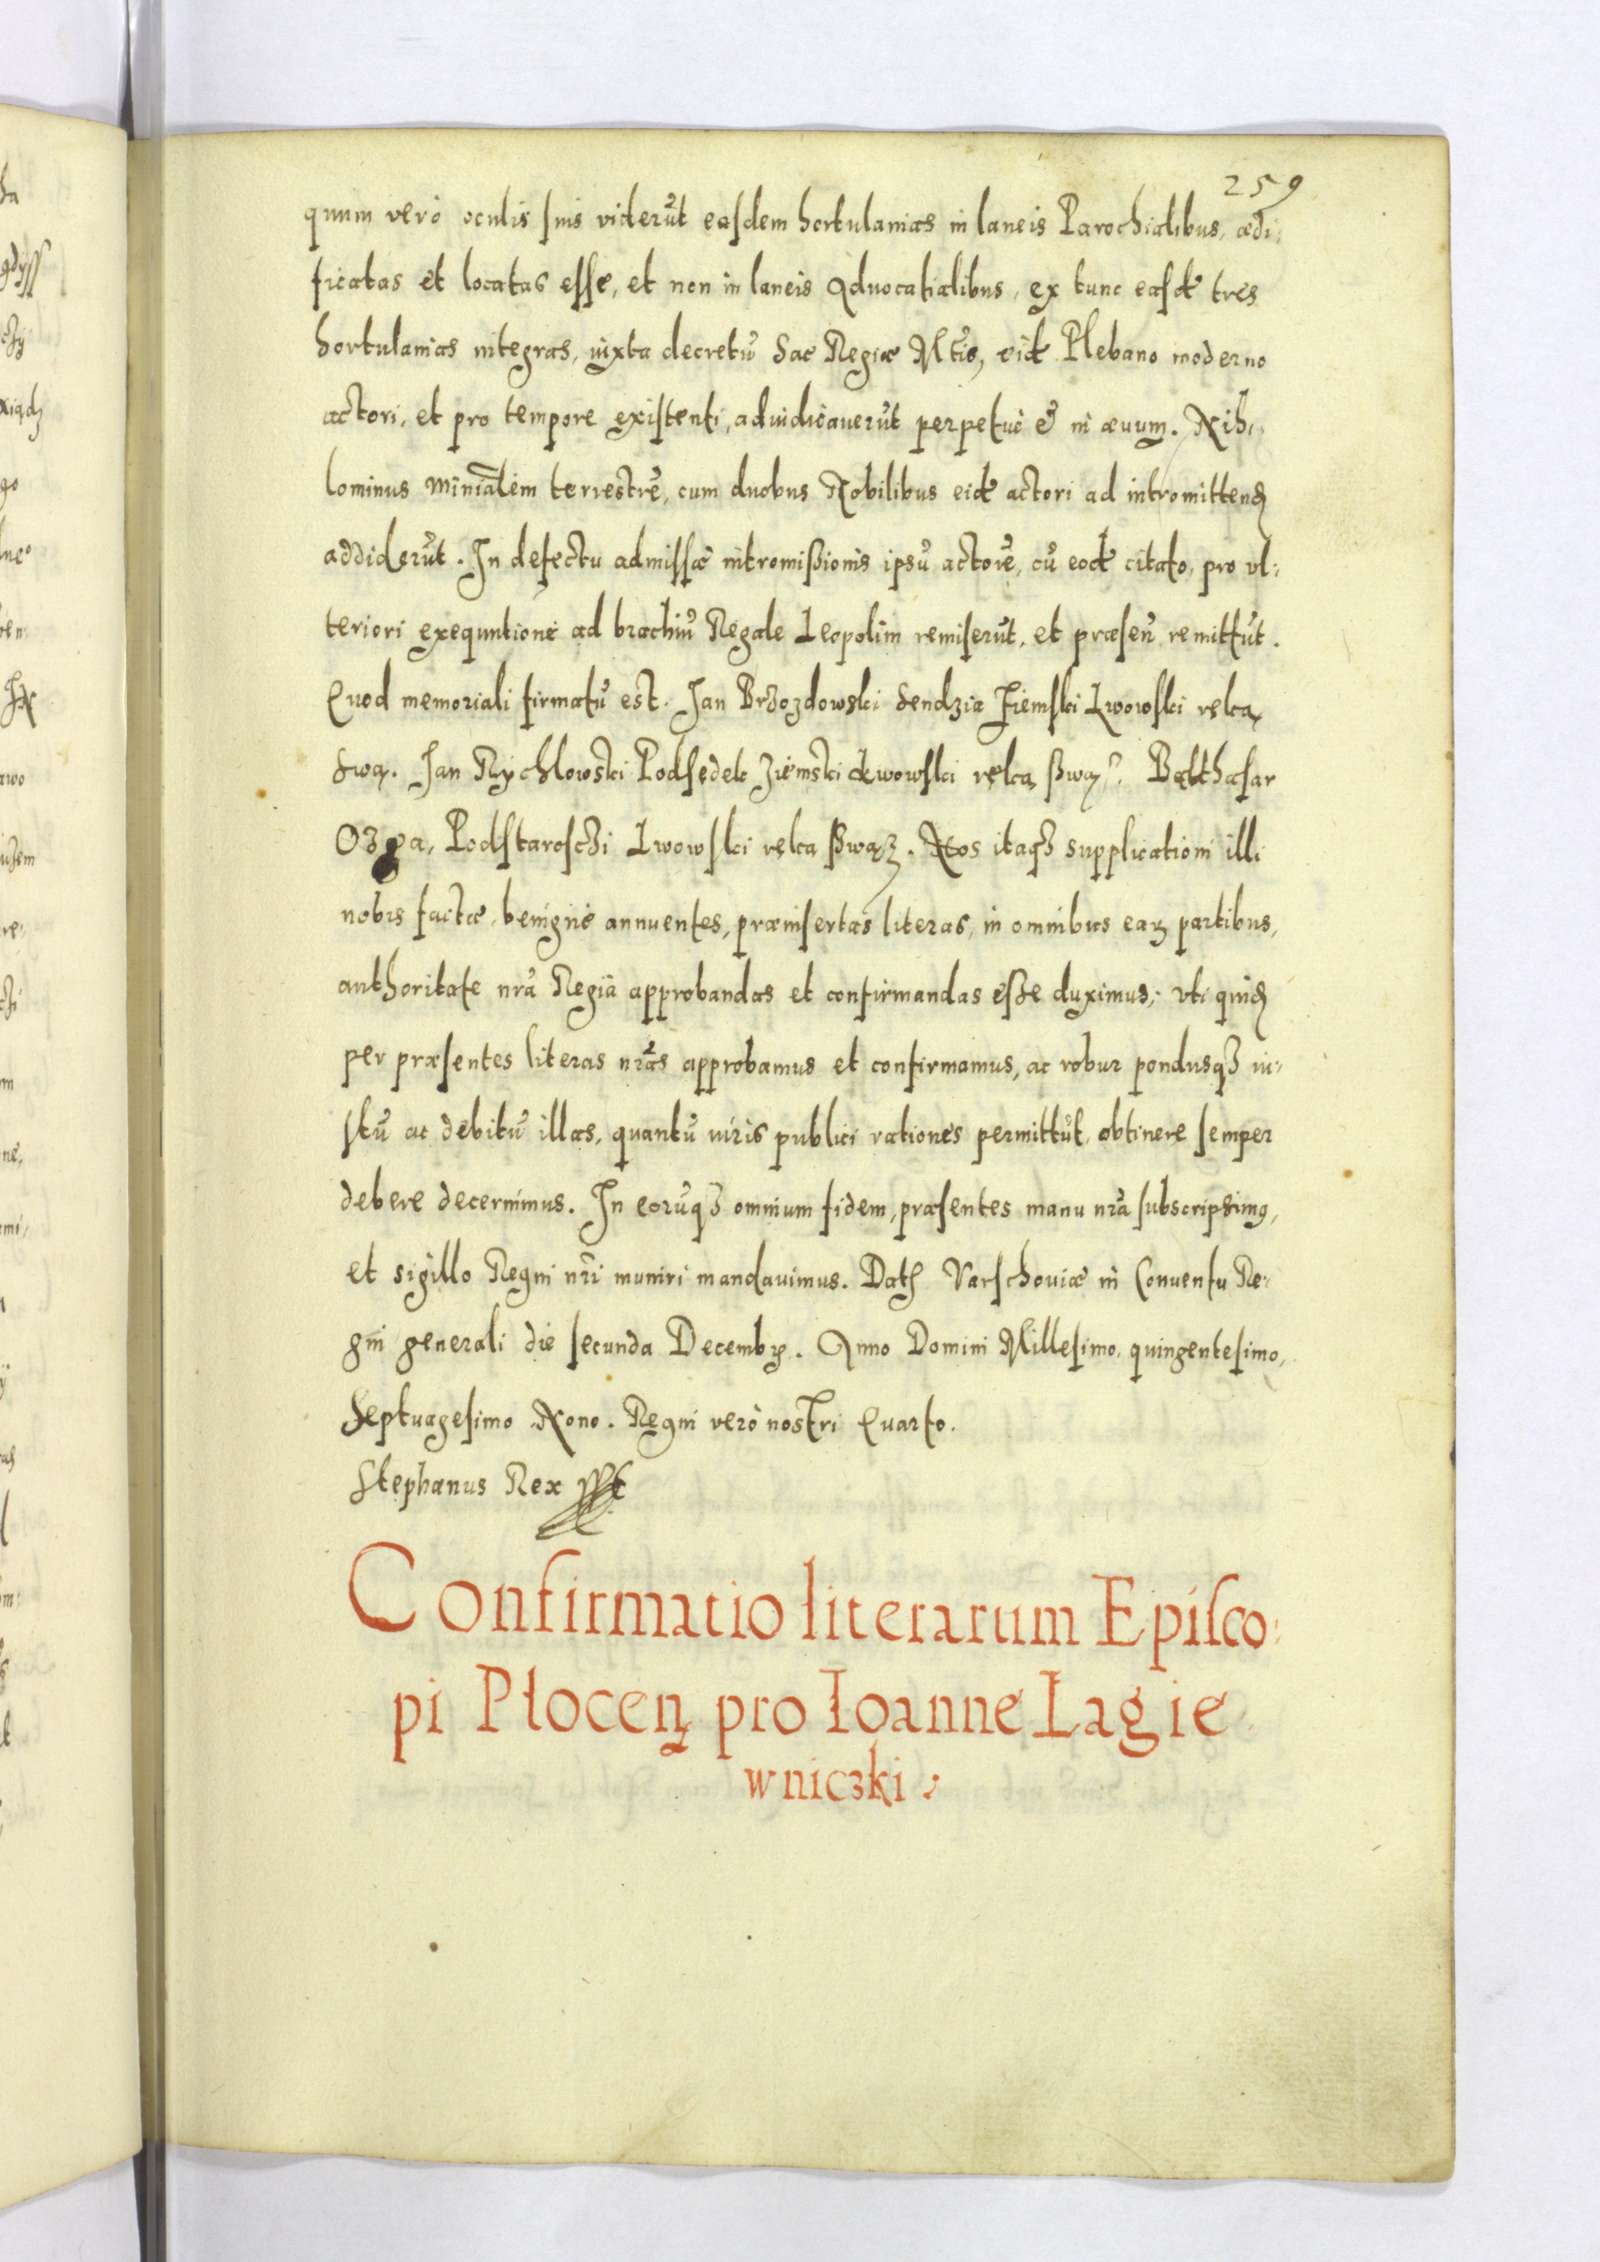 259
quum verò oculis suis viderūt easdem hortulanias in laneis Parochialibus, ædi-
ficatas et locatas esse, et non in laneis Aduocatialibus, ex tunc easdē tres
hortulanias integras, iuxta decretū Sac Regiæ Mtis, eidē Plebano moderno
actori, et pro tempore existenti, adiudicauerūt perpetuè & in æuum. Nihi-
lominus Miniālem terrestrē, cum duobus Nobilibus eidē actori ad intromittend
addiderūt. In defectu admissæ intromißionis ipsū actorē, cū eodē citato, pro vl-
teriori exequutione ad brachiū Regale Leopolim remiserūt, et præsen remittūt.
Quod memoriali firmatū est. Jan Brzozdowski Sendzia Ziemski Lwowski ręką
swą. Jan Rychlowski Podsędek Ziemski Lwowski ręką ßwą. Balthasar
Ozga, Podstarosczi Lwowski ręka ßwą. Nos itaq3 supplicationi illi
nobis factæ, benignè annuentes, præinsertas literas, in omnibus earꝝ partibus,
authoritate nrā Regiā approbandas et confirmandas esse duximus, vti quid
per præsentes literas nrās approbamus et confirmamus, ac robur pondusq3 iu-
stū ac debitū illas, quantū iuris publici rationes permittūt, obtinere semper
debere decernimus. In eorūq3 omnium fidem, præsentes manu nrā subscripsimꝯ,
et sigillo Regni nrī muniri mandauimus. Dat Varschouiæ in Conuentu Re-
gni generali die secunda Decembꝝ. Anno Domini Millesimo, quingentesimo,
Septuagesimo Nono. Regni verò nostri Quarto.
Stephanus Rex
Confirmatio literarum Episco-
pi Płocen pro Ioanne Łagie
wniczki